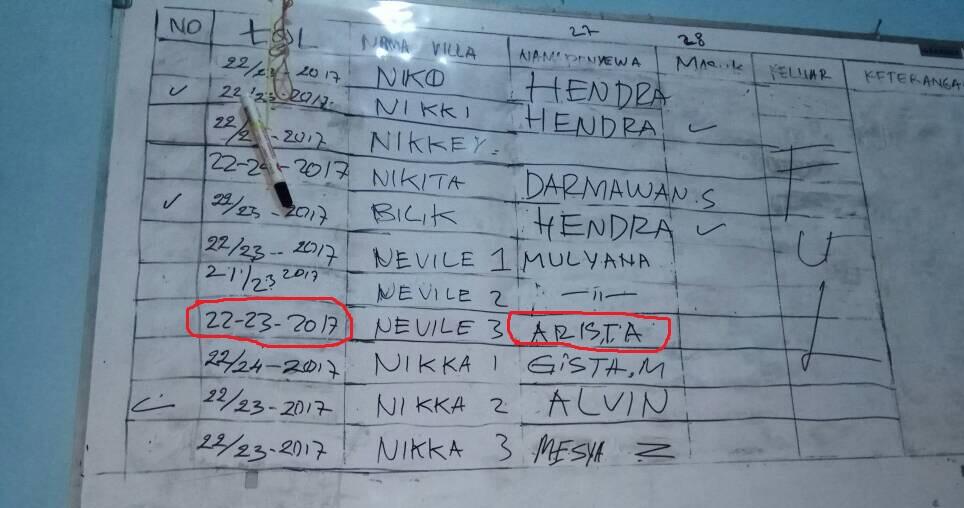 27 28
NO tgl NAMA VILLA NAMA PENYEWA MASUK KELUAR KETERANGA
22/23-2017 NIKO HENDRA
✓ 22/23-2017 NIKKI HENDRA ✓
22/ -2017 NIKKEY
22-24-2017 NIKITA DARMAWAN.S
✓ 22/23-2017 BILIK HENDRA ✓
22/23-2017 NEVILE 1 MULYANA
21/23 2017 NEVILE 2 —ıı—
22-23-2017 NEVILE 3 ARISTA
22/24-2017 NIKKA 1 GISTA.M
22/23-2017 NIKKA 2 ALVIN
22/23-2017 NIKKA 3 MESYA
F
U
L